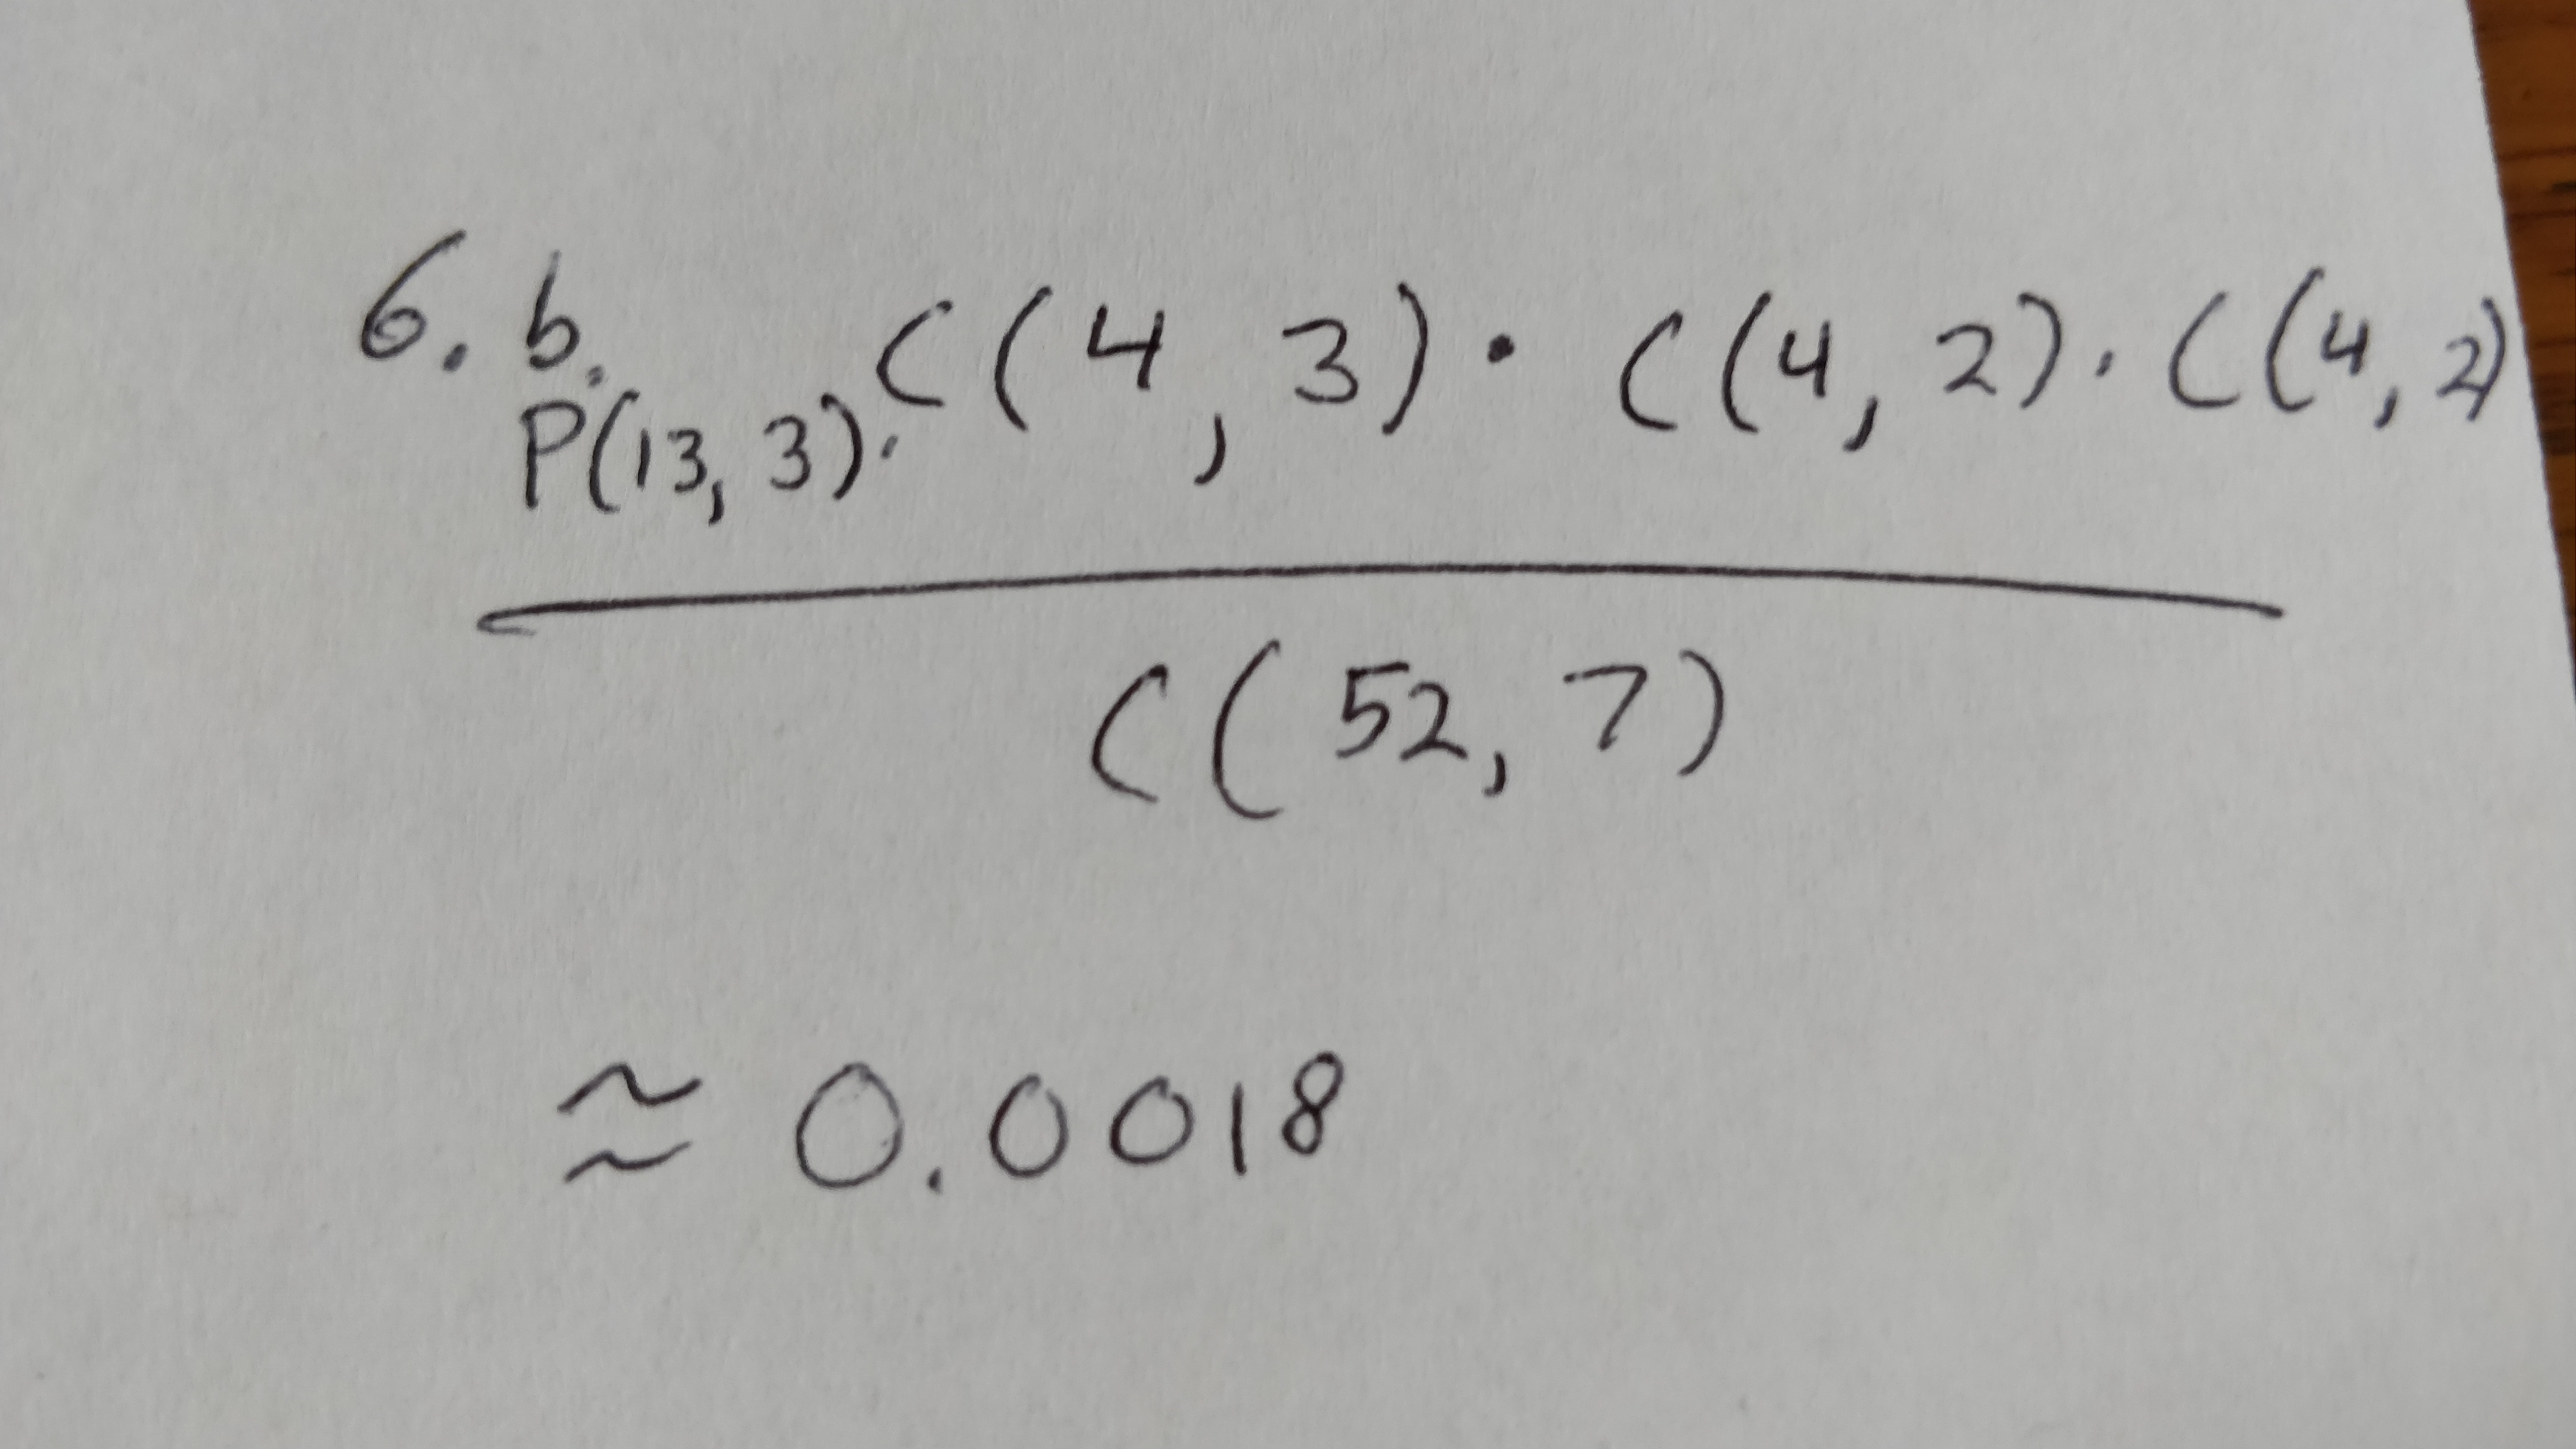 6. b.
P(13, 3) · C(4, 3) · C(4, 2) · C(4, 2)
C(52, 7)
≈ 0.0018